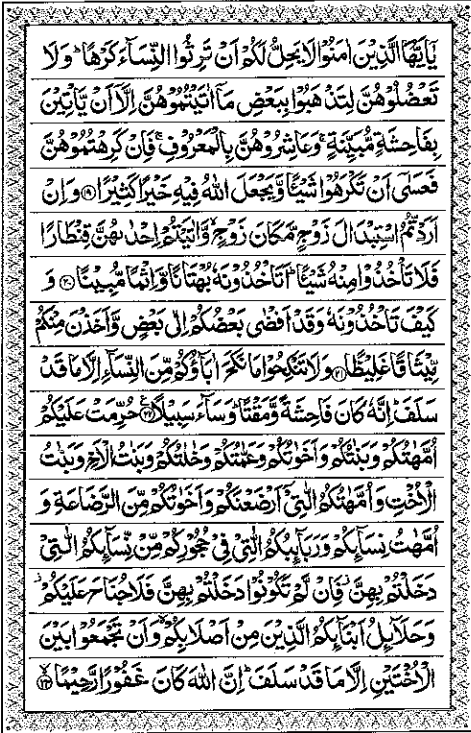 يٰۤاَيُّهَا الَّذِيْنَ اٰمَنُوْا لَا يَحِلُّ لَكُمْ اَنْ تَرِثُوا النِّسَآءَ كَرْهًا ؕ وَلَا
تَعْضُلُوْهُنَّ لِتَذْهَبُوْا بِبَعْضِ مَاۤ اٰتَيْتُمُوْهُنَّ اِلَّاۤ اَنْ يَّاْتِيْنَ
بِفَاحِشَةٍ مُّبَيِّنَةٍ ۚ وَعَاشِرُوْهُنَّ بِالْمَعْرُوْفِ ۚ فَاِنْ كَرِهْتُمُوْهُنَّ
فَعَسٰۤى اَنْ تَكْرَهُوْا شَيْـًٔا وَّيَجْعَلَ اللّٰهُ فِيْهِ خَيْرًا كَثِيْرًا ﴿۱۹﴾ وَاِنْ
اَرَدْتُّمُ اسْتِبْدَالَ زَوْجٍ مَّكَانَ زَوْجٍ ۙ وَّاٰتَيْتُمْ اِحْدٰىهُنَّ قِنْطَارًا
فَلَا تَاْخُذُوْا مِنْهُ شَيْـًٔا ؕ اَتَاْخُذُوْنَهٗ بُهْتَانًا وَّاِثْمًا مُّبِيْنًا ﴿۲۰﴾ وَ
كَيْفَ تَاْخُذُوْنَهٗ وَقَدْ اَفْضٰى بَعْضُكُمْ اِلٰى بَعْضٍ وَّاَخَذْنَ مِنْكُمْ
مِّيْثَاقًا غَلِيْظًا ﴿۲۱﴾ وَلَا تَنْكِحُوْا مَا نَكَحَ اٰبَآؤُكُمْ مِّنَ النِّسَآءِ اِلَّا مَا قَدْ
سَلَفَ ؕ اِنَّهٗ كَانَ فَاحِشَةً وَّمَقْتًا ؕ وَسَآءَ سَبِيْلًا ﴿۲۲﴾ حُرِّمَتْ عَلَيْكُمْ
اُمَّهٰتُكُمْ وَبَنٰتُكُمْ وَاَخَوٰتُكُمْ وَعَمّٰتُكُمْ وَخٰلٰتُكُمْ وَبَنٰتُ الْاَخِ وَبَنٰتُ
الْاُخْتِ وَاُمَّهٰتُكُمُ الّٰتِيْۤ اَرْضَعْنَكُمْ وَاَخَوٰتُكُمْ مِّنَ الرَّضَاعَةِ وَ
اُمَّهٰتُ نِسَآئِكُمْ وَرَبَآئِبُكُمُ الّٰتِيْ فِيْ حُجُوْرِكُمْ مِّنْ نِّسَآئِكُمُ الّٰتِيْ
دَخَلْتُمْ بِهِنَّ ؗ فَاِنْ لَّمْ تَكُوْنُوْا دَخَلْتُمْ بِهِنَّ فَلَا جُنَاحَ عَلَيْكُمْ ؗ
وَحَلَآئِلُ اَبْنَآئِكُمُ الَّذِيْنَ مِنْ اَصْلَابِكُمْ ۙ وَاَنْ تَجْمَعُوْا بَيْنَ
الْاُخْتَيْنِ اِلَّا مَا قَدْ سَلَفَ ؕ اِنَّ اللّٰهَ كَانَ غَفُوْرًا رَّحِيْمًا ﴿۲۳﴾